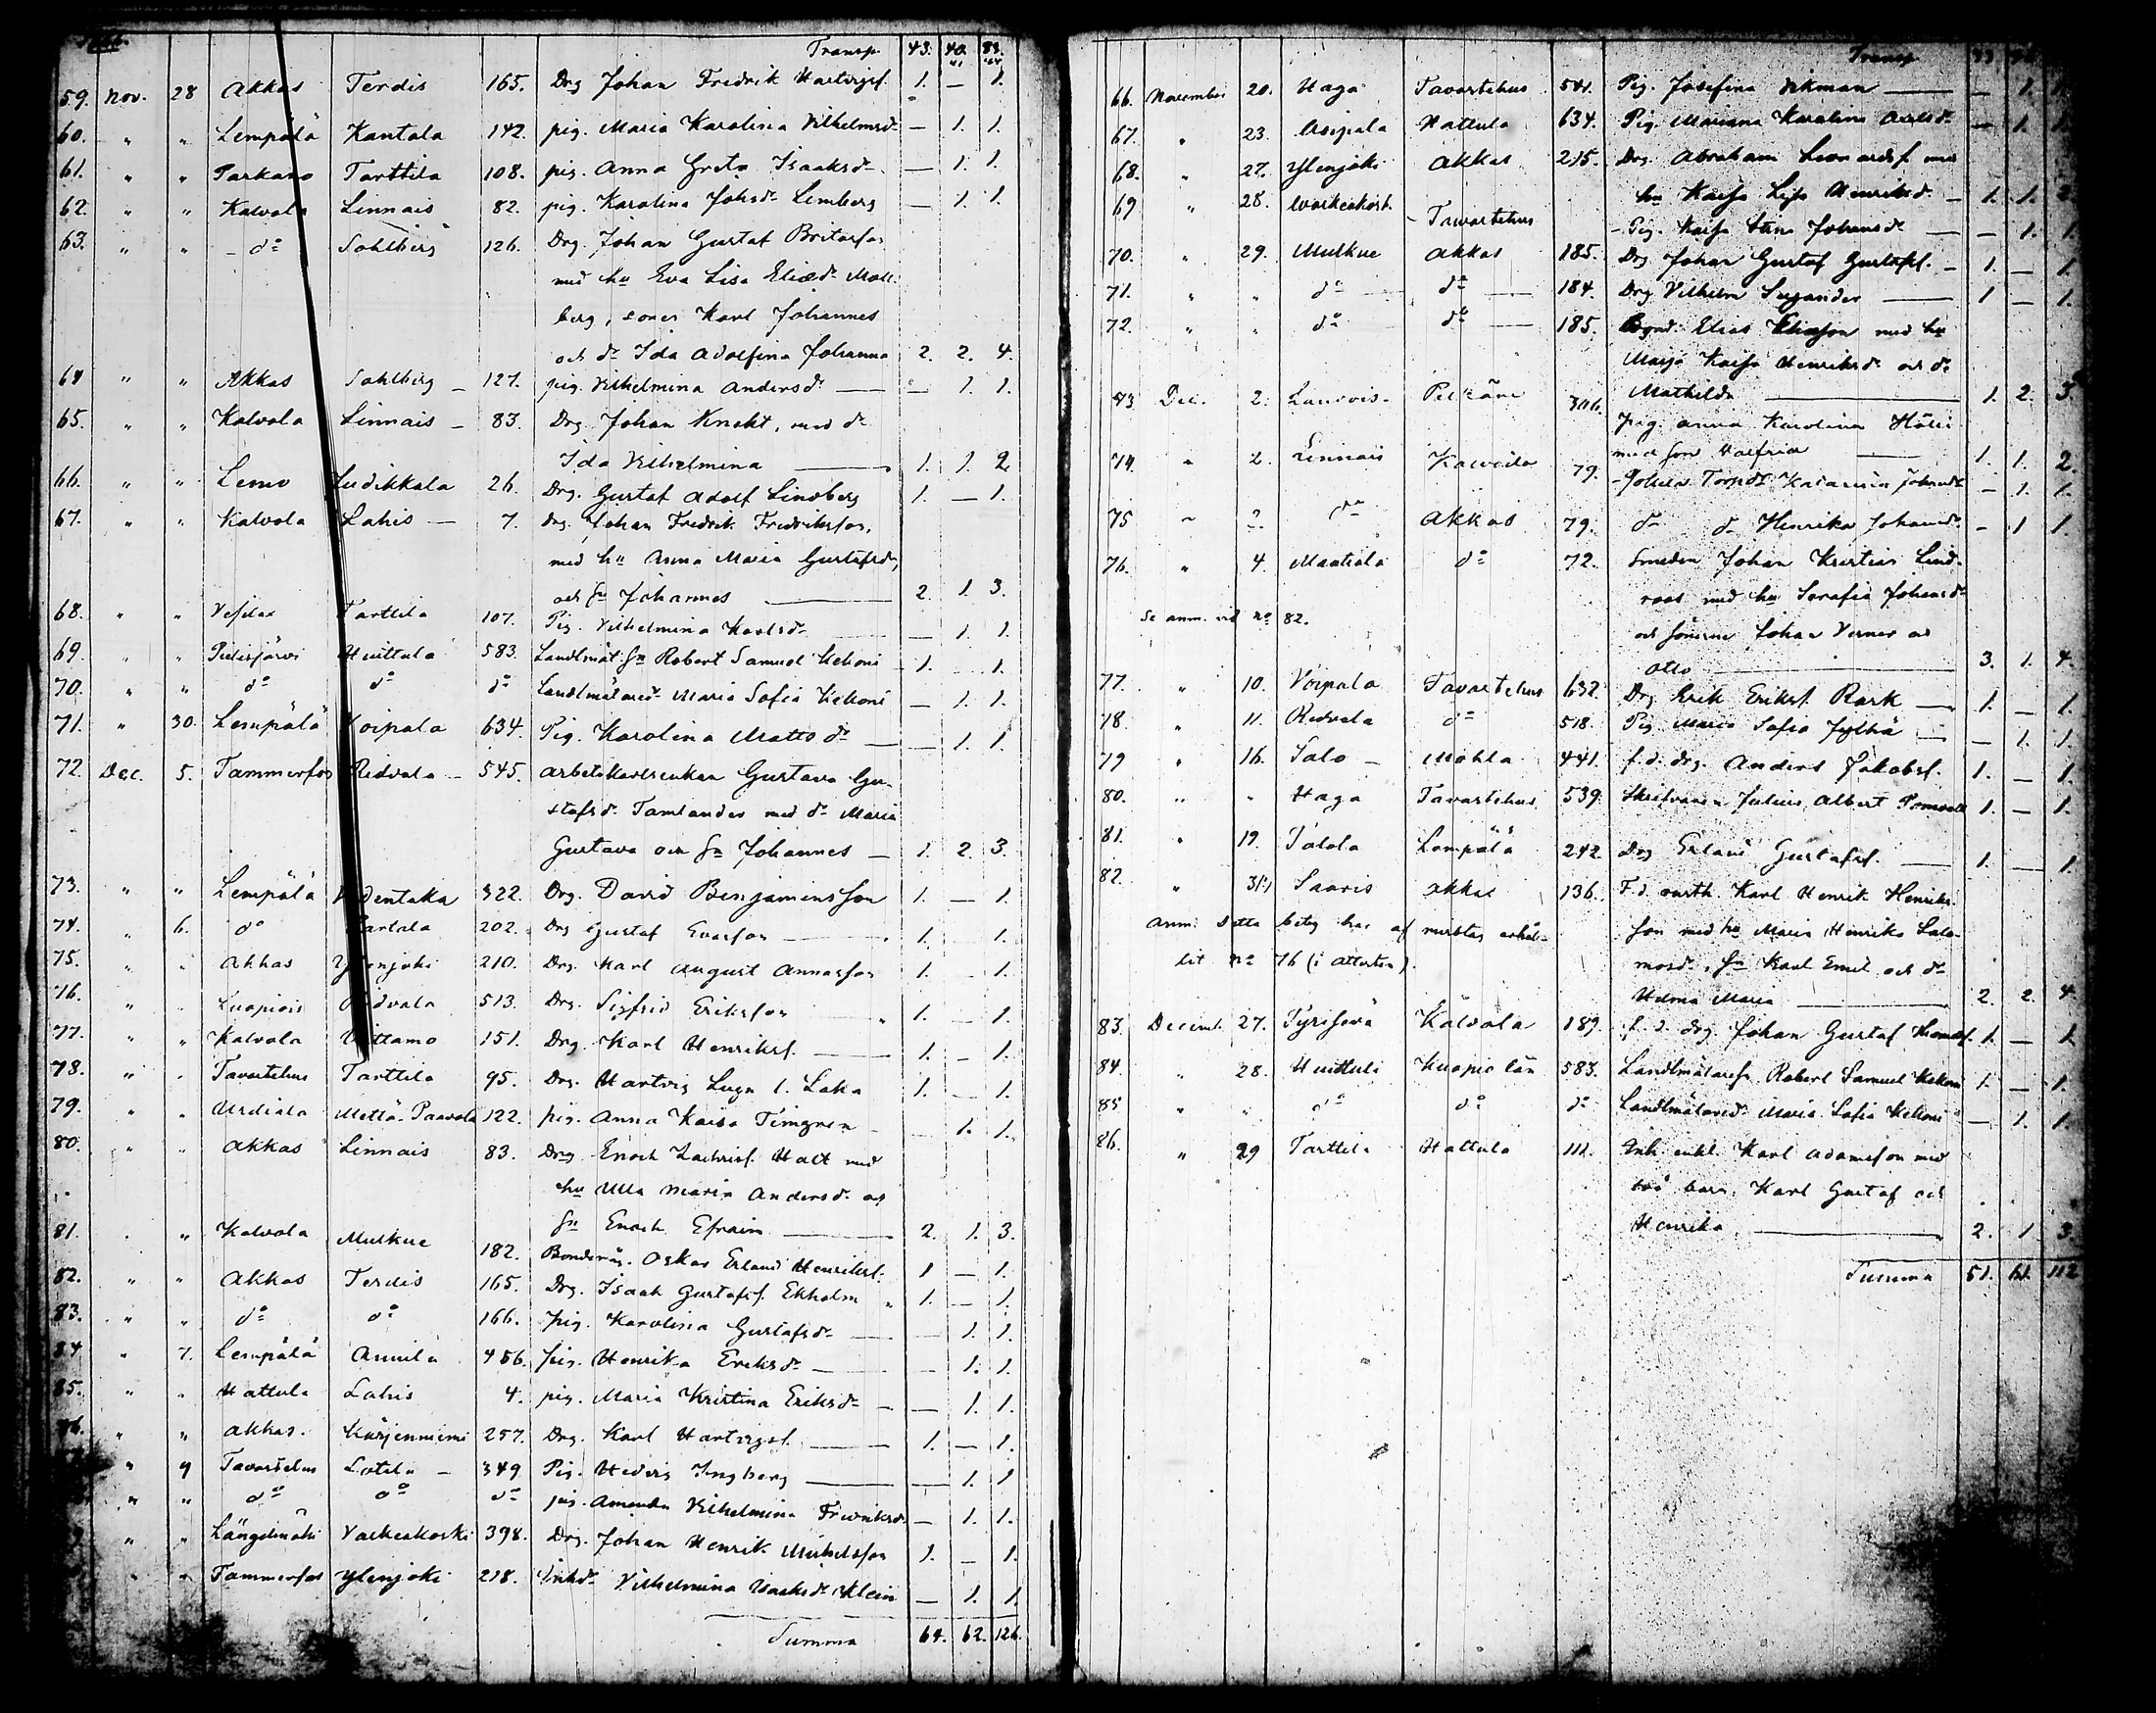 Transp. 43. 40. 83.
41 84
59. Nov. 28 Akkas Terdis 165. Drg Johan Fredrik Hartvigsf. 1. — 1.
60. " " Lempälä Kantala 142. pig. Maria Karolina Vilhelmsd. — 1. 1.
61. " " Parkano Tarttila 108. pig. Anna Greta Isaaksd. — 1. 1.
62. " " Kalvola Linnais 82. pig. Karolina Johsd. Limberg — 1. 1.
63. " " d:o Sohlberg 126. Drg. Johan Gustaf Britasson
med hu Eva Lisa Eliæd. Moll-
berg, soner Karl Johannes
och d. Ida Adolfina Johanna 2. 2. 4.
64 " " Akkas Sohlberg 127. pig. Vilhelmina Andersd. — 1. 1.
65. " " Kalvola Linnais 83. Drg. Johan Knekt, med d.
Ida Vilhelmina 1. 1. 2
66. " " Lemo Ludikkala 26. Drg. Gustaf Adolf Lindberg 1. — 1.
67. " " Kalvola Lahis 7. drg. Johan Fredrik Fredriksson,
med hu Anna Maria Gustafsd,
och sn Johannes 2. 1. 3.
68. " " Vesilax Tarttila 107. Pig. Vilhelmina Karlsd. — 1. 1.
69. " " Pielisjärvi Huittula 583. Landlmät. sn Robert Samuel Kekoni 1. — 1.
70. " " d:o d:o d:o Landlmätared. Maria Sofia Kekoni — 1. 1.
71. " 30. Lempälä Voipala 634. Pig. Karolina Matts d. — 1. 1.
72. Dec. 5. Tammerfors Ridvala 545. Arbetskarlsenkan Gustava Gu-
stafsd. Tamlander med d. Maria
Gustava och sn Johannes 1. 2. 3.
73. " " Lempälä 322. Drg. David Benjaminsson 1. — 1.
74. " 6. d:o 202. Drg Gustaf Evasson 1. 1.
75. " " Akkas Ylenjoki 210. Drg. Karl August Annasson 1. — 1.
76. " " Luopiois Ridvala 513. Drg. Sigfrid Eriksson 1. — 1.
77. " " Kalvola Uittamo 151. Drg. Karl Henriksf. 1. — 1.
78. " " Tavastehus Tarttila 95. Drg. Hartvig Lugn l. Laka 1. — 1.
79. " " Urdiala Mettä-Paavola 122. pig. Anna Kaisa Timgren 1. 1.
80. " " Akkas Linnais 83. Drg Enoch Zachrisf. Halt med
hu Ulla Maria Andersd. och
sn Enoch Efraim 2. 1. 3.
81. " " Kalvola Mulkue 182. Oskar Erland Henriksf. 1 — 1.
82. " " Akkas Terdis 165. Drg. Isaak Gustafsf. Ekholm 1. — 1.
83. " " d:o d:o 166. pig. Karolina Gustafsd. — 1. 1.
84 " 7. Lempälä Annila 456. pig. Henrika Eriksd. — 1. 1.
85. " " Hattula Lahis 4. pig. Maria Kristina Eriksd. — 1. 1.
86. " " Akkas. Kärjenniemi 257. Drg. Karl Hartvigsf. 1. — 1.
" 9 Tavastehus Lotila 349 Pig. Hedvig Ingberg — 1. 1
" " d:o d:o d:o pig. Amanda Vilhelmina Fredriksd. — 1. 1.
" " Längelmäki Valkeakoski 398. Drg. Johan Henrik Mickelsson 1. — 1.
" " Tammerfors Ylenjoki 218. Inhd. Vilhelmina Isaksd. Klein — 1. 1.
Summa 64. 62. 126.
Transp.
66. November 20. Haga Tavastehus 541. Pig. Josefina Vikman — 1. 1.
67. " 23. Voipala Hattula 634. Pig. Mariana Karolina — 1. 1.
68. " 27. Ylenjoki Akkas 215. Drg. Abraham Leonardsf. med
hu Kaisa Lisa Henriksd. 1. 1. 2
69 " 28. Valkeakoski Tavastehus Pig. Kaisa Stina Johansd. — 1. 1.
70. " 29. Mulkue Akkas 185. Drg. Johan Gustaf Gustafsf. 1. — 1.
71. " " d:o d:o 184. Drg. Vilhelm Sugander 1 — 1.
72. " " d:o d:o 185. Bond. Elias Eliasson med hu
Maija Kaisa Henriksd. och d.
Mathilda 1. 2. 3.
73 Dec. 2. Pelkäne Pig. Anna Karolina
med son Valfrid 1. 1. 2.
74. " 2. Linnais Kalvola 79. Katarina Johansd. — 1. 1.
75 " 2. d:o Akkas 79. d:o d. Henrika Johansd. — 1 1.
76. " 4. d:o 72. Smeden Johan Kristian Lind-
roos med hu Serafia Johansd.
Se anm. vid no 82.
och sönerne Johan Verner och
Otto 3. 1. 4.
77. " 10. Voipala Tavastehus 632. Drg Erik Eriksf. Rask 1. — 1.
78. " 11. Ridvala d:o 518. Pig. Maria Sofia Jylhä — 1. 1.
79 " 16. Salo Mohla 441. f. d. drg. Anders Jakobsf. 1. — 1.
80. " " Haga Tavastehus 539. Skrifvaren Julius Albert 1. — 1.
81. " 19. Lempälä 242 Drg Erland Gustafsf. 1. — 1.
82. " 31. Saaris Akkas 136. F. d. Karl Henrik Henriks-
Anm: Detta betyg har af misstag erhål-
son med hu Maria Henrika Salo-
lit no 76 (i attesten).
monsd., sn Karl Emil och d.
Hilma Maria 2. 2. 4
83. Decemb. 27. Kalvola 189. f. d. drg Johan Gustaf Thomasf. 1. — 1.
84. " 28. Huittula Kuopio län 583. Landlmätaresn Robert Samuel Kekoni 1. — 1.
85 " " d:o d:o d:o Landlmätared. Maria Sofia Kekoni — 1. 1
86. " 29 Tarttila Hattula 111. Inh. enkl. Karl Adamsson med
två barn, Karl Gustaf och
Henrika 2. 1 3.
Summa 51. 61. 112